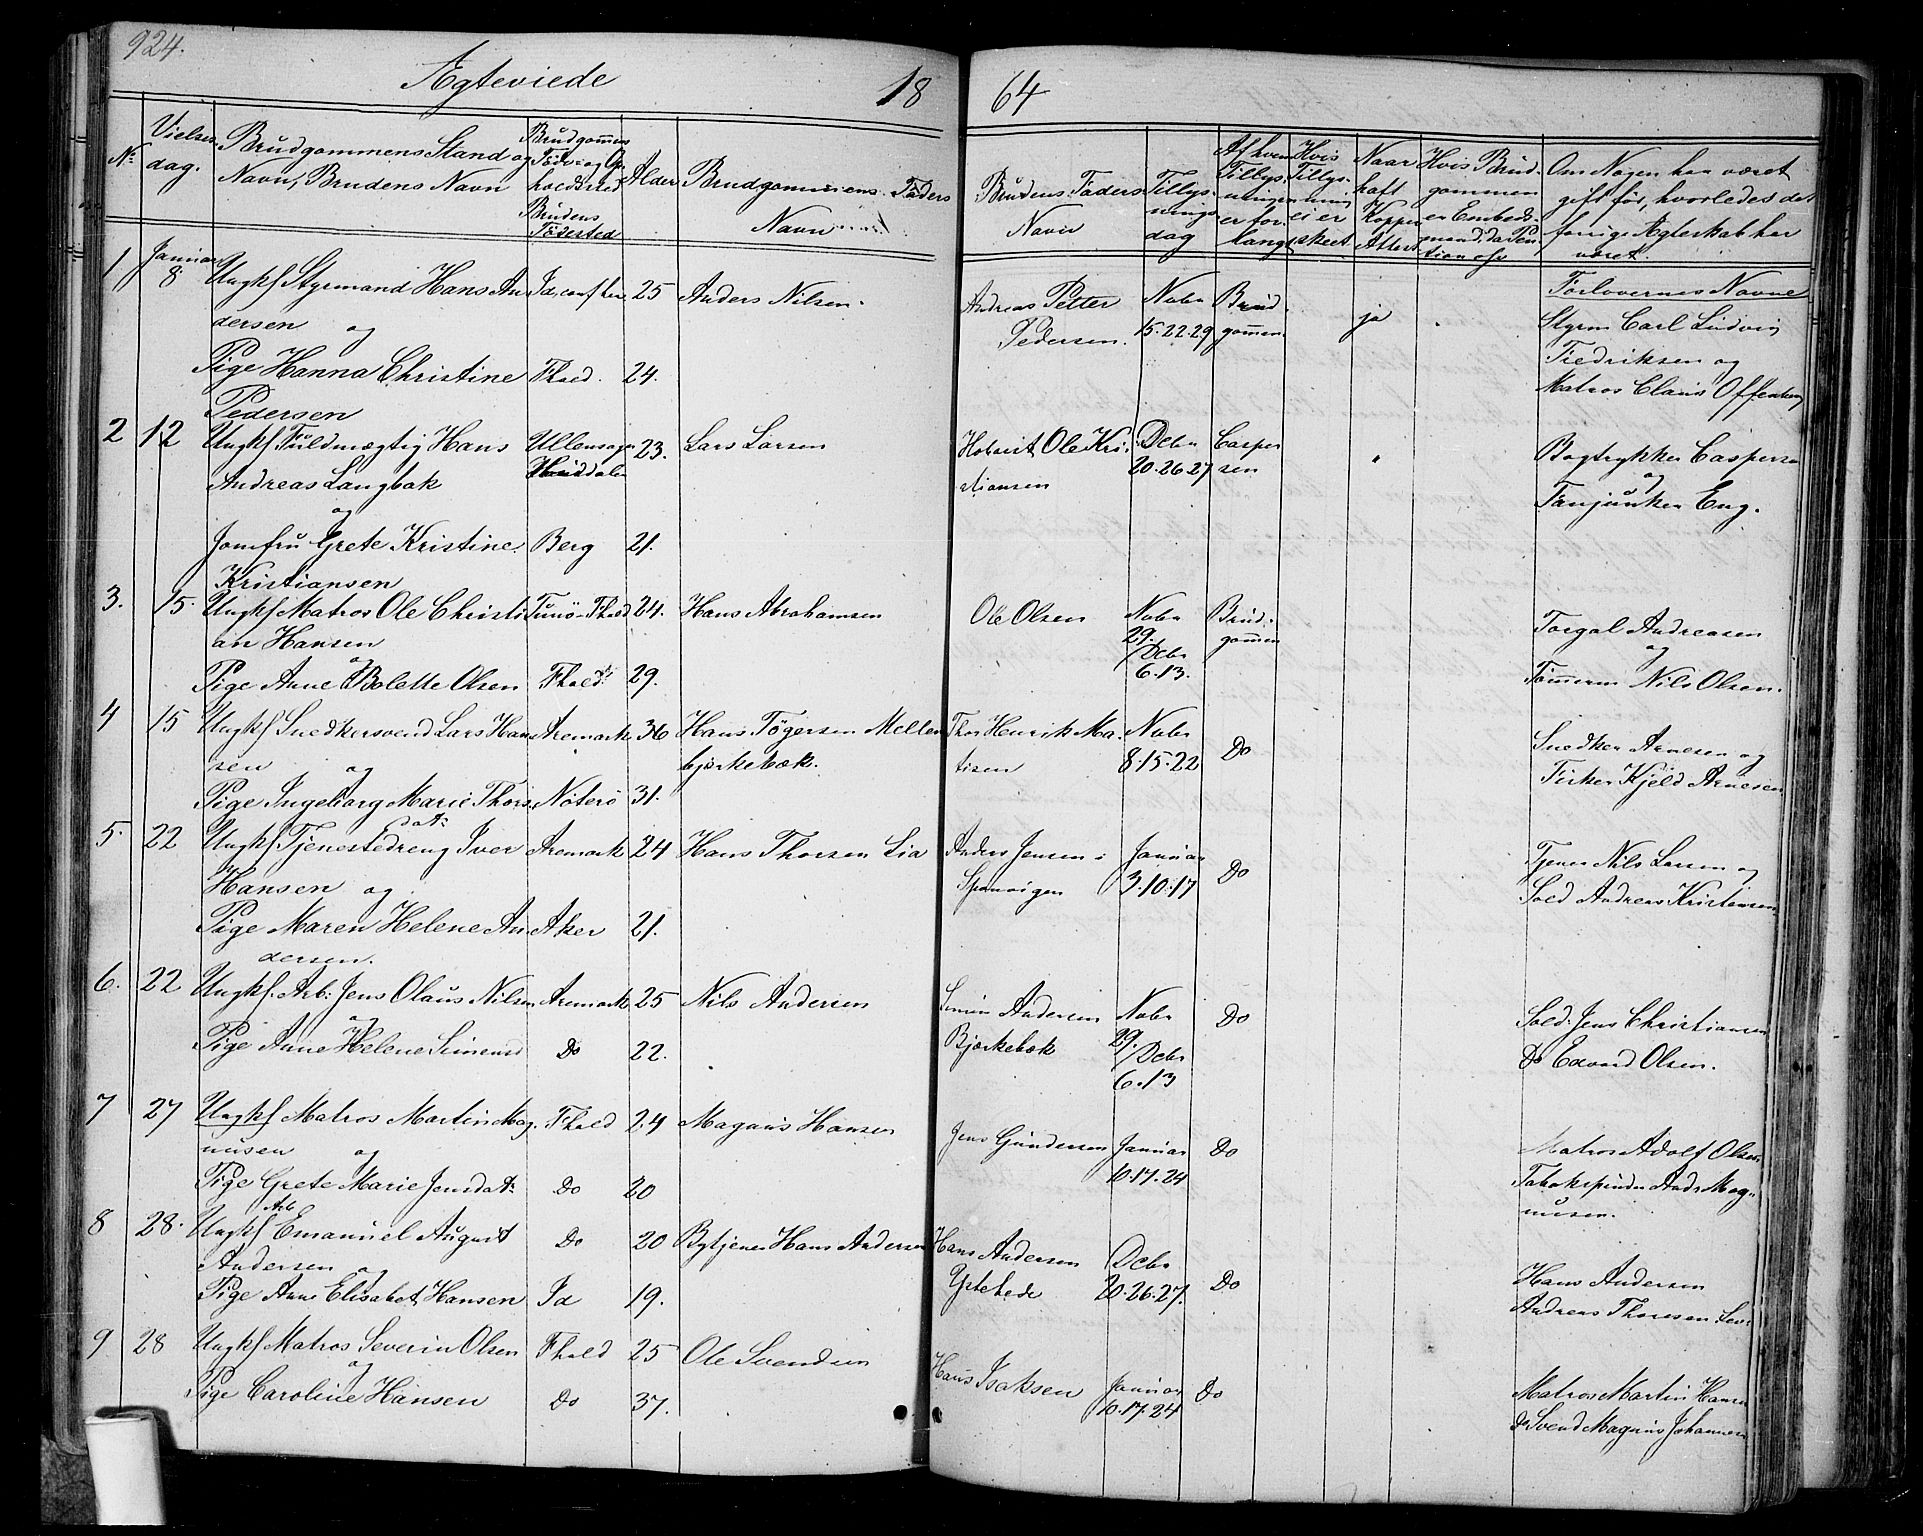 924.
Ægteviede 18 64
No Vielses dag. Brudgommens Stand og Navn, Brudens Navn Brudgommens Føde og Opholdssted Brudens Fødested Alder Brudgommens Faders Navn Brudens Faders Navn Tillysnings dag Af hvem Tillysningen er forlangt Hvis Tillysning ei er skeet Naar haft Kopper Attest Hvis Brudgommen er Embedsmand, da Om Nogen har været gift før, hvorledes det forrige Ægteskab har været.
Forlovernes Navne
1 Januar 8 Ungkf Styrmand Hans An- 25 Anders Nilsen Andreas Petter Novbr Brud- ja Styrm Carl Ludvig
dersen og Pedersen. 15.22.29 gommen Fredriksen og
Pige Hanna Christine Fhald. 24. Matros Claus Offenberg
Pedersen
2 12 Ungkf Fuldmægtig Hans Ullensager 23. Lars Larsen Ole Kri- Decbr Casper Bogtrykker Caspersen
Andreas Langbak stiansen 20.26.27 sen og
og Eng.
Jomfru Grete Kristine Berg 21.
Kristiansen
3. 15. Ungkf Matros Ole Christi Fhald 24. Hans Abrahamsen Ole Olsen Novbr Brud- Torgal Andreasen
an Hansen 29. gommen og
og Decbr
Pige Anne Bolette Olsen Fhald 29. 6.13. Tømmerm Nils Olsen.
4 15 Ungkf Snedkersvend Lars Han Aremark 36 Hans Tøgersen Mellem Thor Henrik Ma- Novbr Do Snedker Arnesen og
sen og bjørkebæk. tisen 8.15.22 Kjeld Arnesen
Pige Ingeborg Marie Thors Nøterø 31.
datr
5. 22 Ungkf Tjenestedreng Iver Aremark 24 Hans Thorsen Lia Anders Jensen Januar Do Tjener Nils Larsen og
Hansen og 3.10.17 Sold Andreas Kristensen
Pige Maren Helene An- Aker 21.
dersen.
6. 22 Ungkf. Arb: Jens Olaus Nilsen Aremark 25 Nils Andersen Simon Andersen Novbr Do Sold: Jens Christiansen
og Bjørkebæk 29. Do Edvard Olsen.
Pige Anne Helene Simensd Do 22. Decbr
6.13
7 27 Ungkf Matros Martin Mag- Fhald 24 Magnus Hansen Jens Gundersen Januar Do Matros Adolf Olsen
nusen og 10.17.24 Tobakspinder Andr Mag-
Pige Grete Marie Jensdatr Do 20 nusen.
8 28. Ungkf Arb Emanuel August Do 20 Bytjener Hans Andersen Hans Andersen Decbr Hans Andersen
Andersen og Ystehede 20.26.27. Do
Pige Anne Elisabet Hansen Id 19. Andreas Thoresen
9 28 Ungkf Matros Severin Olsen Fhald 25 Ole Svendsen Hans Isaksen Januar Do Matros Martin Hansen
og 10.17.24
Pige Caroline Hansen Do 37. Do Svend Magnus Johannesen